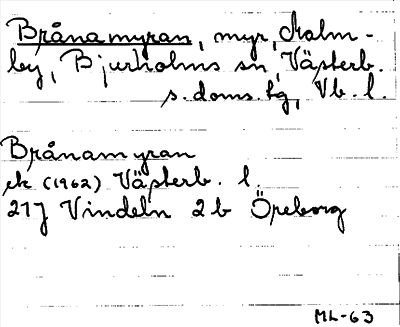 Brånamyran, myr, Kalm-
by, Bjurholms sn, Västerb.
s. doms. tg, Vb. l.
Brånamyran
ek (1962) Västerb. l.
21J Vindeln 2b Öreborg
ML-63